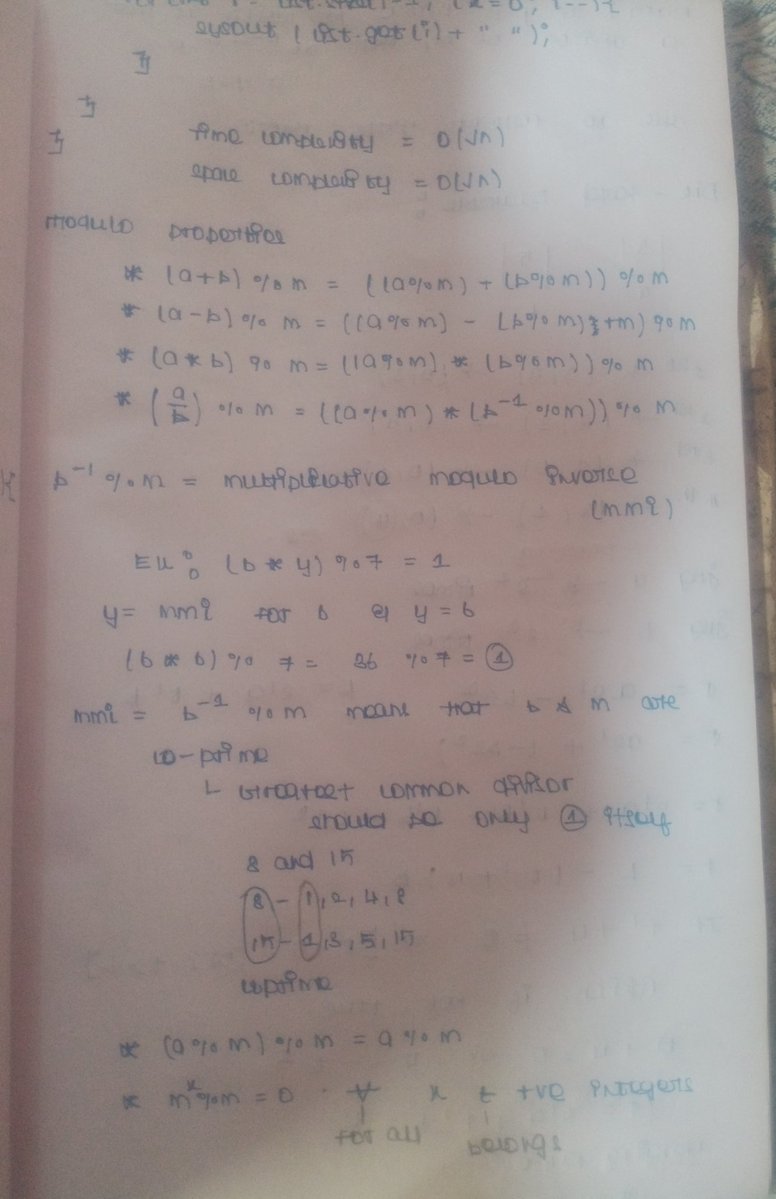 sysout ( list.get(i) + " " );
}
}
}
time complexity = O(√n)
space complexity = O(√n)
modulo properties
* (a+b) % m = ((a%m) + (b%m)) % m
* (a-b) % m = ((a%m) - (b%m) + m) % m
* (a*b) % m = ((a%m) * (b%m)) % m
* (a/b) % m = ((a%m) * (b⁻¹ %m)) % m
b⁻¹ % m = multiplicative modulo inverse
(mmi)
Ex: (6 * y) % 7 = 1
y = mmi for 6 y = 6
(6 * 6) % 7 = 36 % 7 = 1
mmi = b⁻¹ % m means that b & m are
co-prime
└ Greatest common divisor
should be only 1 itself
8 and 15
8 - 1, 2, 4, 8
15 - 1, 3, 5, 15
coprime
* (a % m) % m = a % m
* mˣ % m = 0 ∀ x ∈ +ve integers
for all belongs